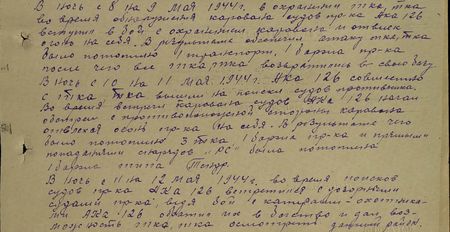 В ночь с 8 на 9 мая 1944г. в охранении тка, тка
во время обнаружения каравана судов пр-ка АКА 126
вступил в бой с охранением каравана и отвлек
огонь на себя. В результате
было потоплено 1 транспорт, 1 баржа пр-ка
после чего все тка, тка возвратились в свою базу
В ночь с 10 на 11 мая 1944г. АКА 126 совместно
с тка тка вышли на поиски судов противника.
Во время встречи каравана судов АКА 126 начал
обстрел с противоположной стороны каравана
отвлекая огонь пр-ка на себя. В результате чего
было потоплено 3 тка 1 баржа пр-ка и прямыми
попаданиями снарядов "РС" была потоплена
1 баржа типа
В ночь с 11 на 12 мая 1944г. во время поисков
судов пр-ка АКА 126 встретился с дозорными
судами пр-ка, ведя бой с катерами-охотника-
ми АКА 126 обратил их в бегство и дал воз-
можность тка, тка осмотреть данный район.